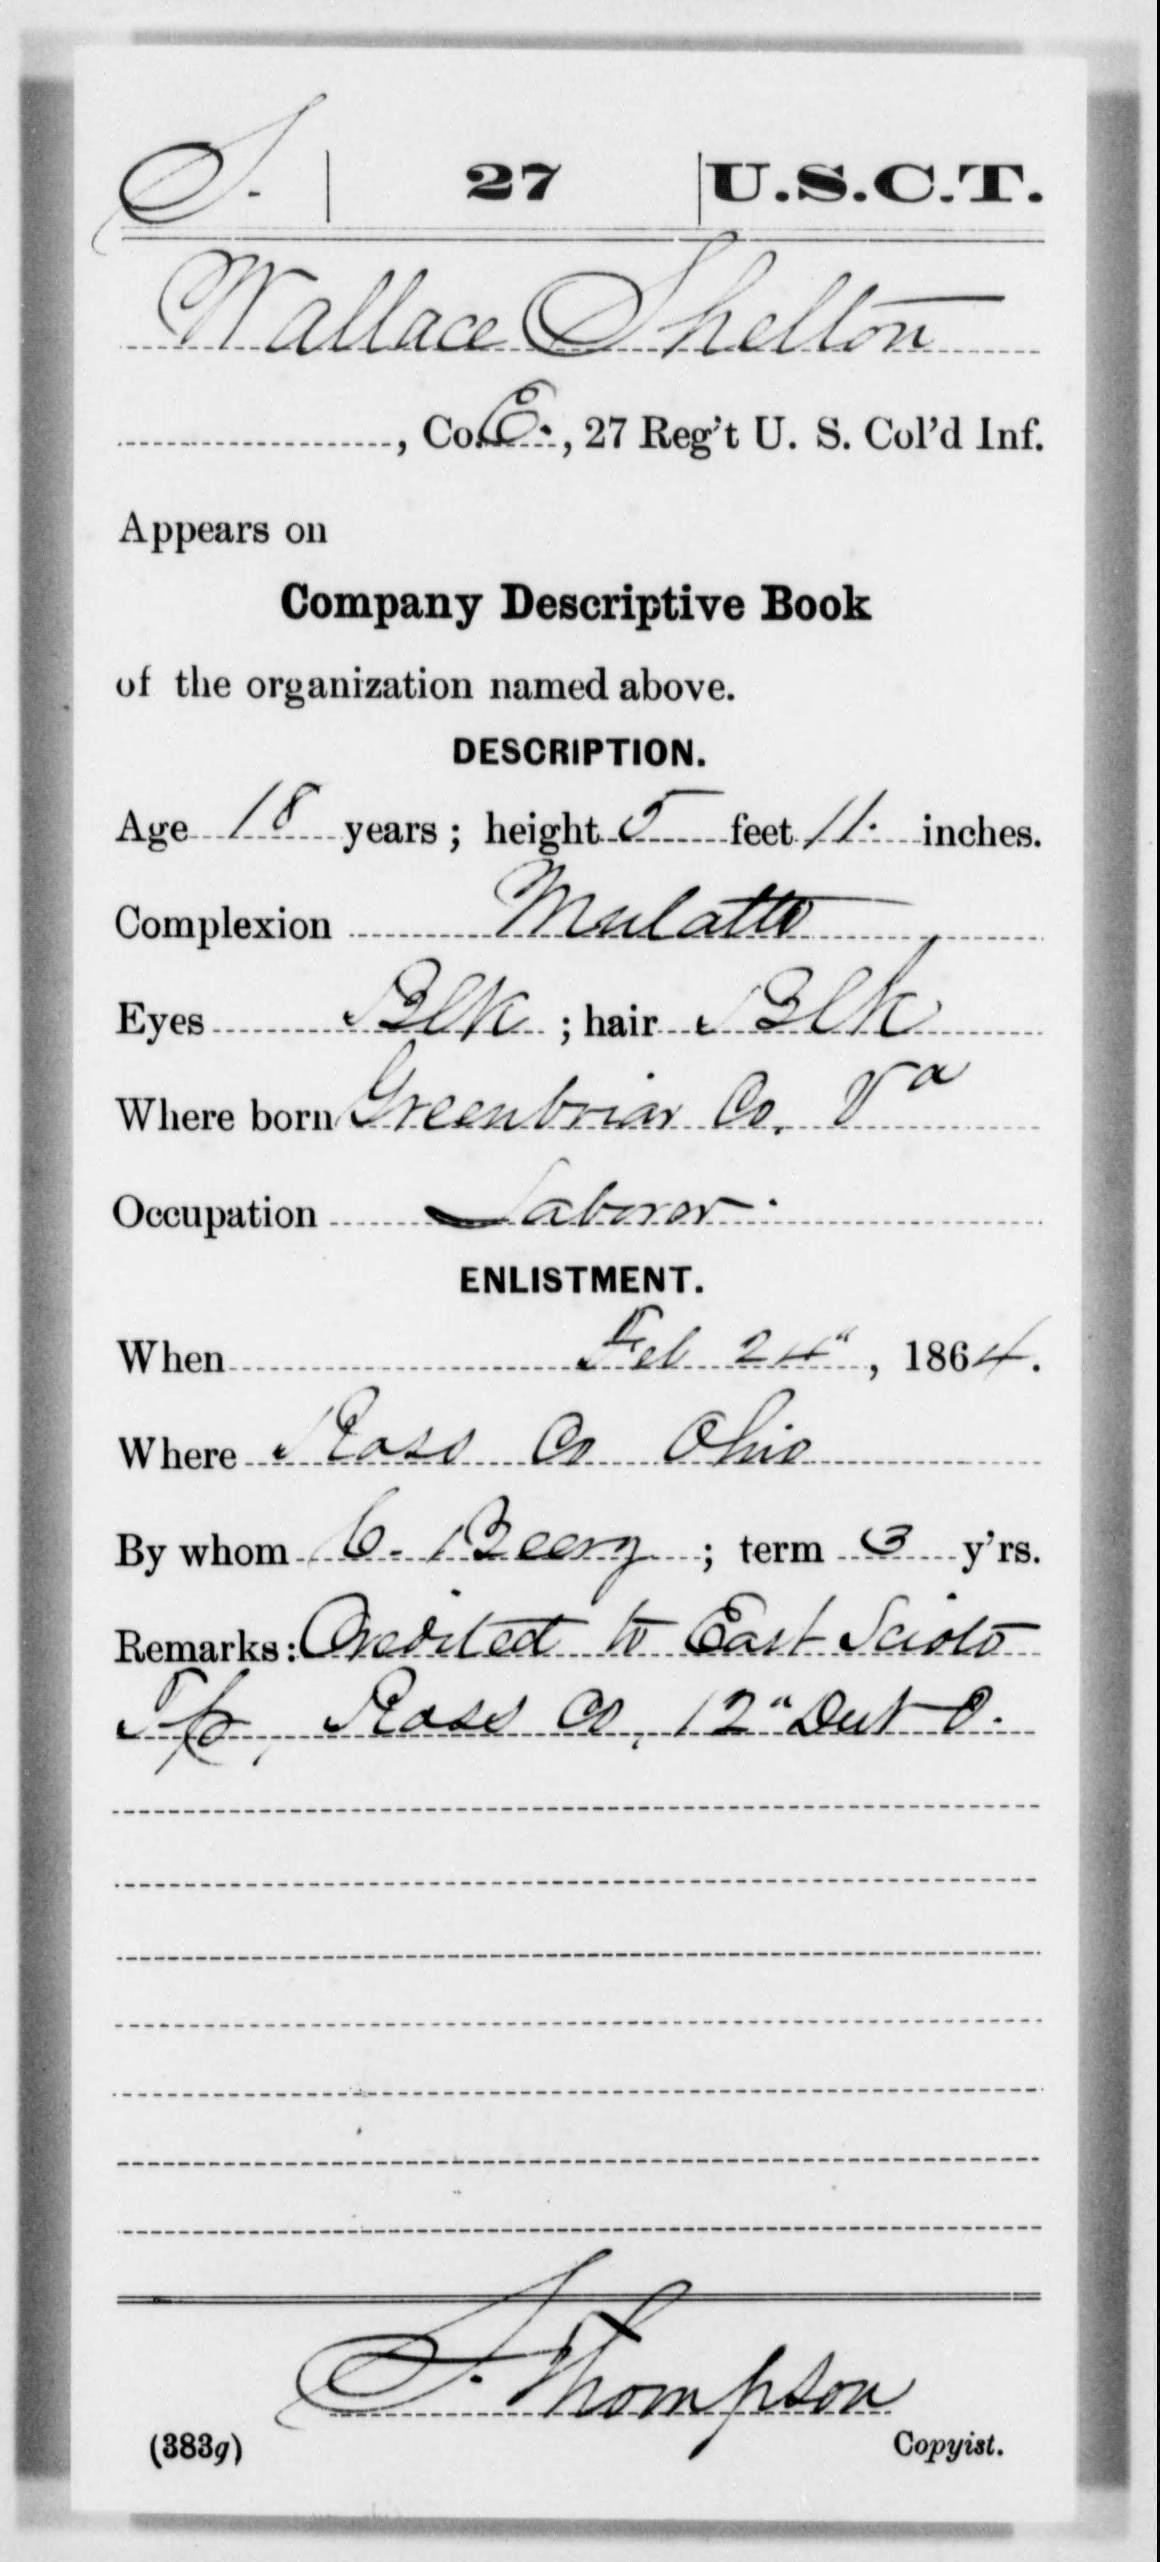 S. | 27 | U.S.C.T.
Wallace Shelton
, Co. E., 27 Reg't U. S. Col'd Inf.
Appears on
Company Descriptive Book
of the organization named above.
DESCRIPTION.
Age 18 years; height 5 feet 11. inches.
Complexion Mulatto
Eyes Blk ; hair Blk
Where born Greenbriar Co. Va
Occupation Laborer.
ENLISTMENT.
When Feb 24", 1864.
Where Ross Co Ohio
By whom C. Beery ; term 3 y'rs.
Remarks: Credited to East Scioto
Tp, Ross Co, 12" Dist O.
S. Thompson
(383g) Copyist.